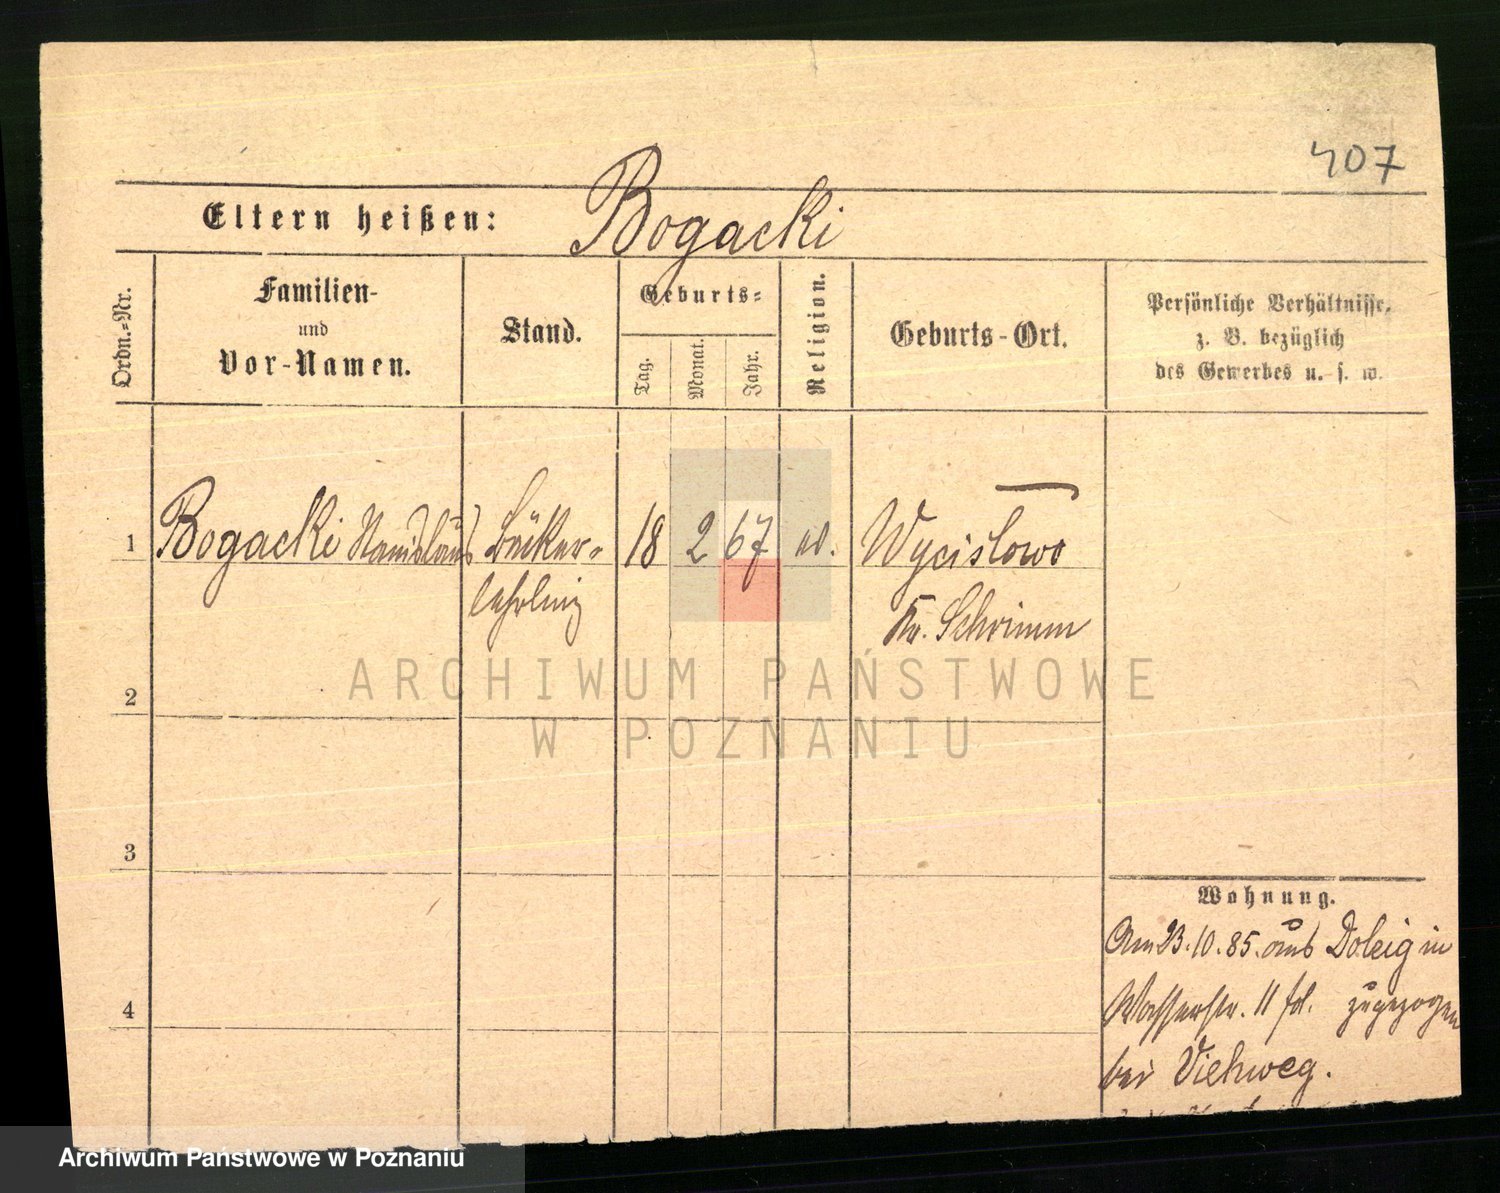 407
Eltern heißen: Bogacki
Ordn.=Nr.
Familien-
und
Vor-Namen.
Stand.
Geburts=
Tag.
Monat.
Jahr.
Religion.
Geburts-Ort.
Persönliche Verhältnisse,
z. B. bezüglich
des Gewerbes u. s. w.
1 Bogacki Stanislaus Bäcker- 18 2 67 Wycislowo
lehrling Kr. Schrimm
2
3
4
Wohnung.
Am 23.10.85. aus Dolzig in
Wasserstr. 11 zugezogen
bei Viehweg.
ARCHIWUM PAŃSTWOWE
W POZNANIU
Archiwum Państwowe w Poznaniu